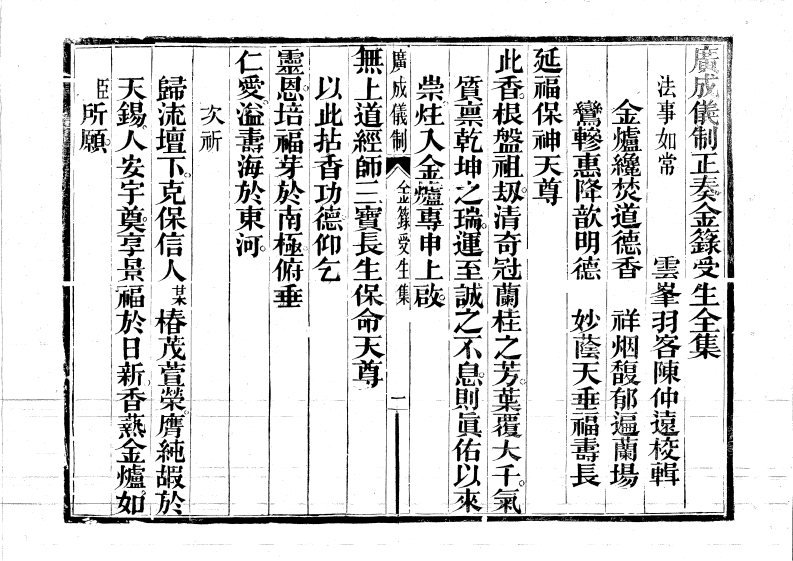 廣成儀制正奏金籙受生全集
法事如常　雲峯羽客陳仲遠校輯
金爐纔焚道德香　祥烟馥郁遍蘭場
鸞驂惠降歆明德　妙蔭天垂福壽長
延福保神天尊
此香根盤祖刼清奇冠蘭桂之芳葉覆大千氣
質禀乾坤之瑞運至誠之不息則眞佑以來
崇炷入金爐專申上啟
廣成儀制　金籙受生集　一
無上道經師三寶長生保命天尊
以此拈香功德仰乞
靈恩培福芽於南極俯垂
仁愛溢壽海於東河
次祈
歸流壇下克保信人某椿茂萱榮膺純嘏於
天錫人安宇奠享景福於日新香爇金爐如
臣所願